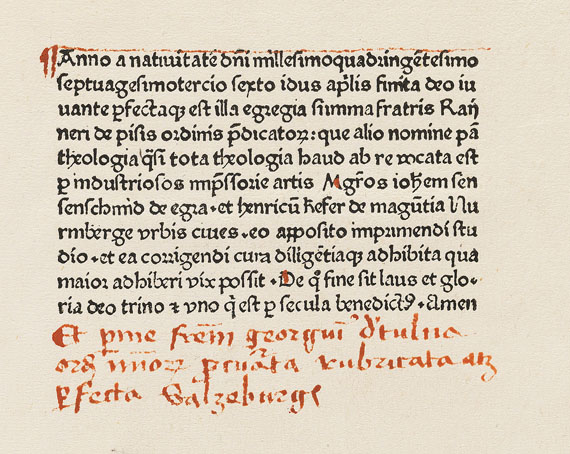 ¶ Anno a natiuitate dñi millesimoquadringẽtesimo
septuagesimotercio sexto idus aṕlis finita deo iu
uante ꝑfectaqꝫ est illa egregia summa fratris Raỹ
neri de pisis ordinis p̃dicatoꝝ: que alio nomine pã
theologia q̃si tota theologia haud ab re vocata est
ꝑ industriosos imp̃ssorie artis Mgr̃os ioh̃em sen
senschmid de egra·et henricũ kefer de magũtia Nu
rmberge vrbis ciues·eo apposito imprimendi stu
dio·et ea corrigendi cura diligẽtiaqꝫ adhibita qua
maior adhiberi vix possit·De qͦ fine sit laus et glo⸗
ria deo trino ⁊ vno q̇ est ꝑ secula benedictꝰ·Amen
Et pme frẽm georgiuͫ
orđ mnorꝝ rubricata atqꝫ
ꝑfecta Salzeburge